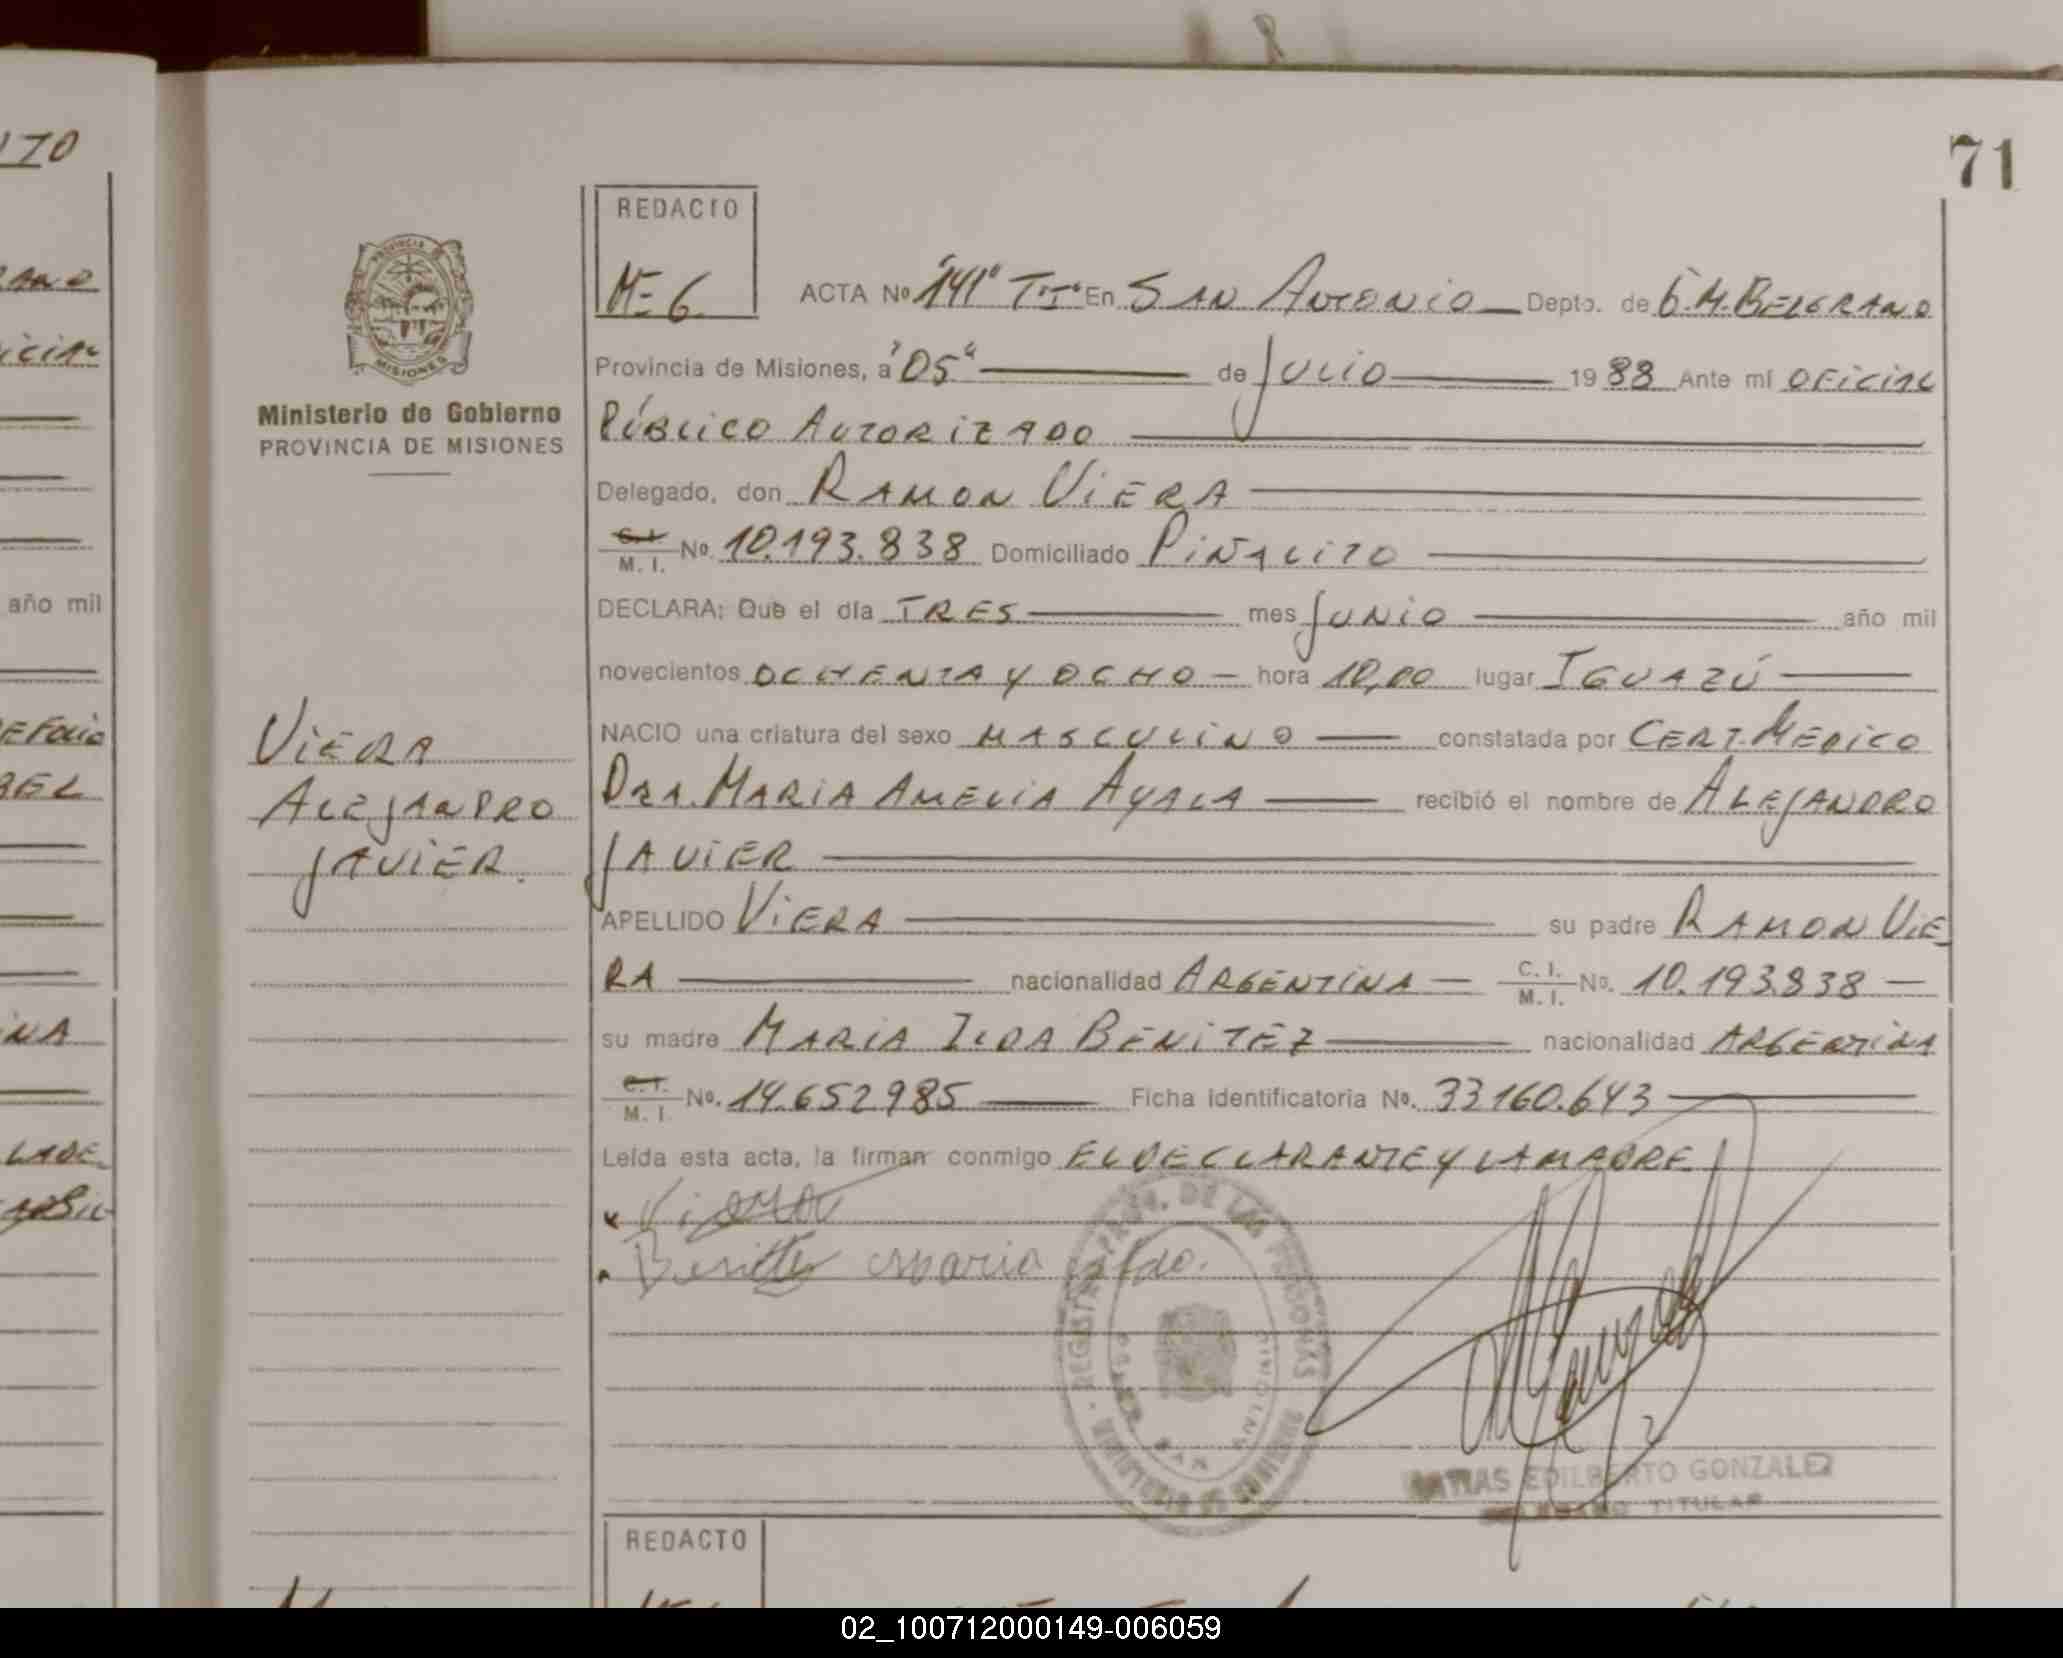 71
REDACTO
M=6.
ACTA No "141" TI" En SAN ANTONIO Depto. de G.M.BELGRANO
Provincia de Misiones, a "05" de JULIO 1988 Ante mi OFICIAL
PÚBLICO AUTORIZADO
Delegado, don RAMON VIERA
C.I. M. I. No. 10.193.838 Domiciliado PIÑALITO
DECLARA: Que el día TRES mes JUNIO año mil
novecientos OCHENTA Y OCHO hora 10,00 lugar IGUAZÚ
NACIO una criatura del sexo MASCULINO constatada por CERT.MEDICO
DRA. MARIA AMELIA AYALA recibió el nombre de ALEJANDRO
JAVIER
APELLIDO VIERA su padre RAMON VIE
RA nacionalidad ARGENTINA C. I. M. I. No. 10.193.838
su madre MARIA ILDA BENITEZ nacionalidad ARGENTINA
C.I. M. I. No. 14.652985 Ficha identificatoria No. 33160.643
Leída esta acta, la firman conmigo EL DECLARANTE Y LA MADRE
x Viera
Benitez Maria ilda.
REGISTRO PROV. DE LAS PERSONAS
SAN ANTONIO
MATIAS EDILBERTO GONZALEZ
DELEGADO TITULAR
REDACTO
PROVINCIA DE
MISIONES
Ministerio de Gobierno
PROVINCIA DE MISIONES
VIERA
ALEJANDRO
JAVIER.
año mil
02_100712000149-006059